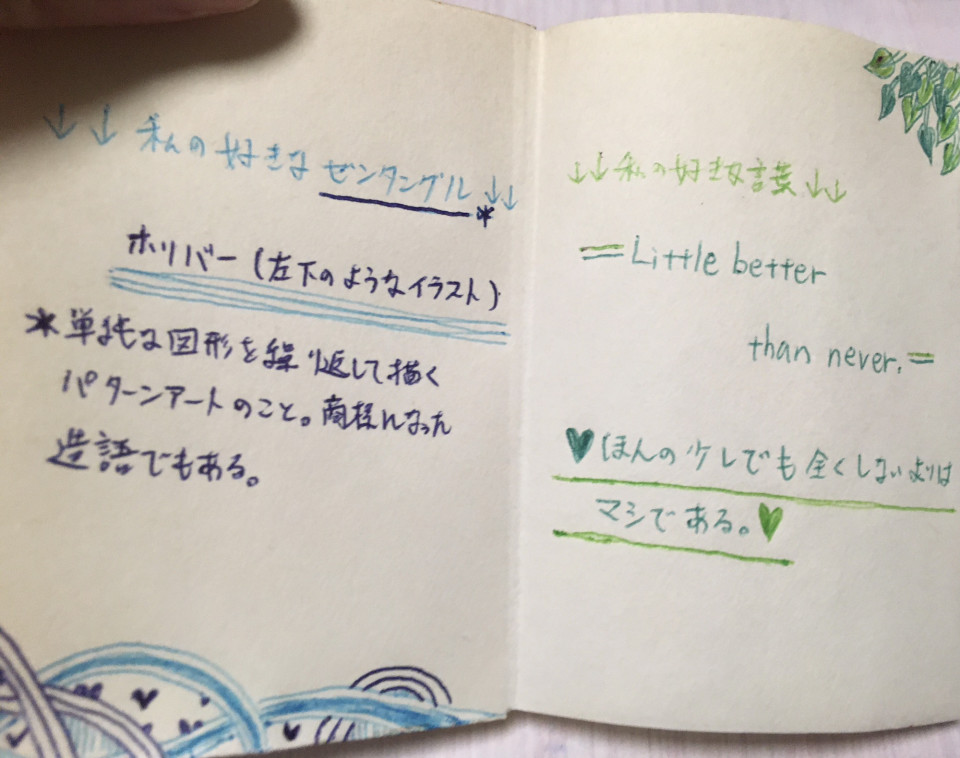 ↓↓私の好きなゼンタングル↓↓
*
ホリバー(左下のようなイラスト)
*単純な図形を繰り返して描く
パターンアートのこと。商標になった
造語でもある。
↓↓私の好きな言葉↓↓
=Little better
than never.=
♥ほんの少しでも全くしないよりは
マシである。♥